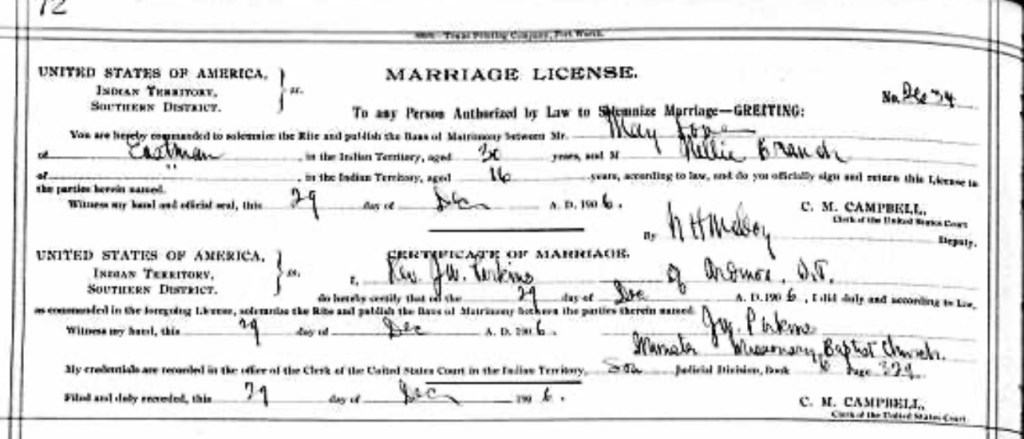 72
UNITED STATES OF AMERICA,
INDIAN TERRITORY,
SOUTHERN DISTRICT.
ss.
MARRIAGE LICENSE.
No.
To any Person Authorized by Law to Solemnize Marriage—GREETING:
You are hereby commanded to solemnize the Rite and publish the Bans of Matrimony between Mr. May
of Eastman, in the Indian Territory, aged 30 years, and M Nellie Branch
of " , in the Indian Territory, aged 16 years, according to law, and do you officially sign and return this License to
the parties herein named.
Witness my hand and official seal, this 29 day of Dec A. D. 1906.
C. M. CAMPBELL,
Clerk of the United States Court
By Deputy.
UNITED STATES OF AMERICA,
INDIAN TERRITORY,
SOUTHERN DISTRICT.
ss.
CERTIFICATE OF MARRIAGE.
I, Rev. J.W. Perkins of Ardmore, I.T.
do hereby certify that on the 29 day of Dec A. D. 1906, I did duly and according to Law,
as commanded in the foregoing License, solemnize the Rite and publish the Bans of Matrimony between the parties therein named.
Witness my hand, this 29 day of Dec A. D. 1906. J.W. Perkins
Minister Missionary Baptist Church.
My credentials are recorded in the office of the Clerk of the United States Court in the Indian Territory, Sou Judicial Division, Book Page 329
Filed and duly recorded, this 29 day of Dec 1906.
C. M. CAMPBELL,
Clerk of the United States Court